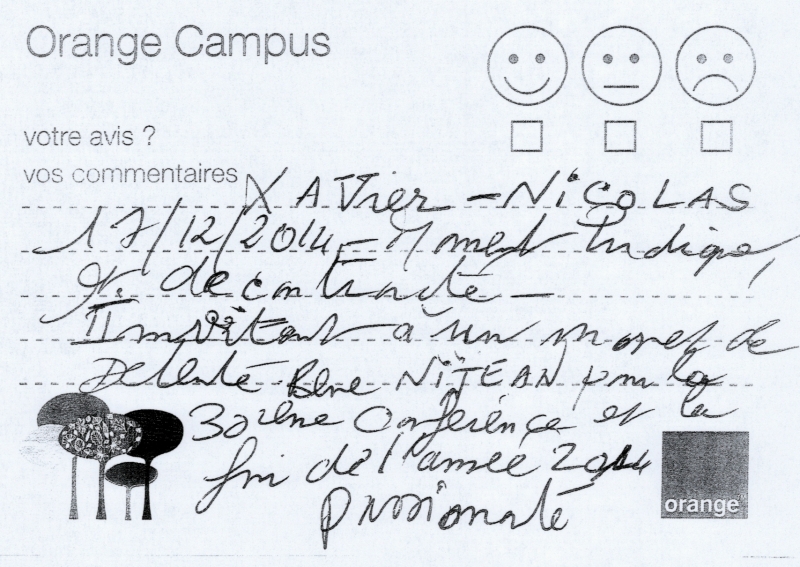 Orange Campus
votre avis ?
vos commentaires XAVier - NiCOLAS
17/12/2014 - Moment ludique,
et decontracté -
Invitant à un moment de
Detente Bene NiTEAN pour la
30ième Conférence et la
fin de l'année 2014
passionnaté
orange